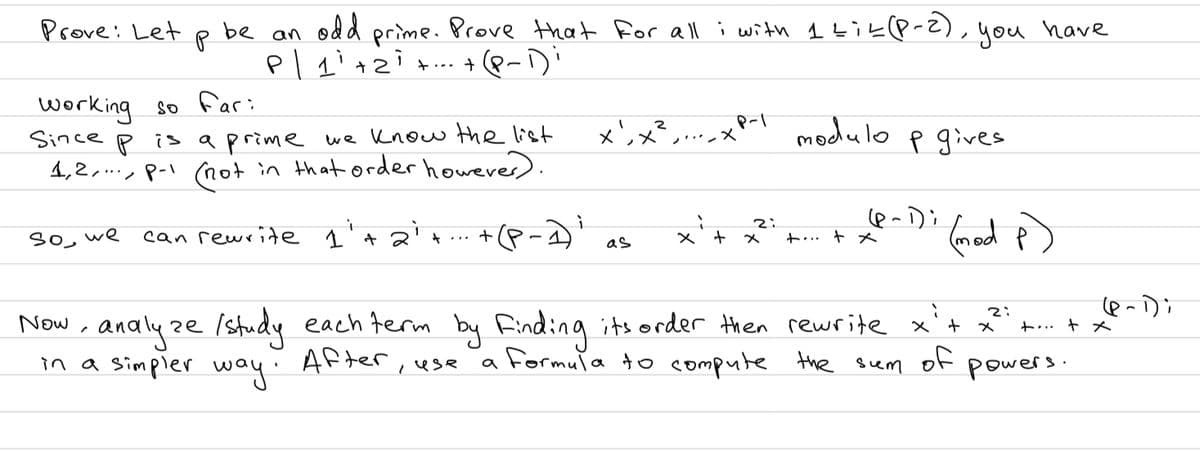 Prove: Let p be an odd prime. Prove that for all i with 1≤i≤(p-2), you have
p | 1^i + 2^i + ... + (p-1)^i
working so far:
Since p is a prime we know the list x^1, x^2, ..., x^{p-1} modulo p gives
1,2,..., p-1 (not in that order however).
so, we can rewrite 1^i + 2^i + ... + (p-1)^i as x^i + x^{2i} + ... + x^{(p-1)i} (mod p)
Now, analyze /study each term by finding its order then rewrite x^i + x^{2i} + ... + x^{(p-1)i}
in a simpler way. After, use a formula to compute the sum of powers.